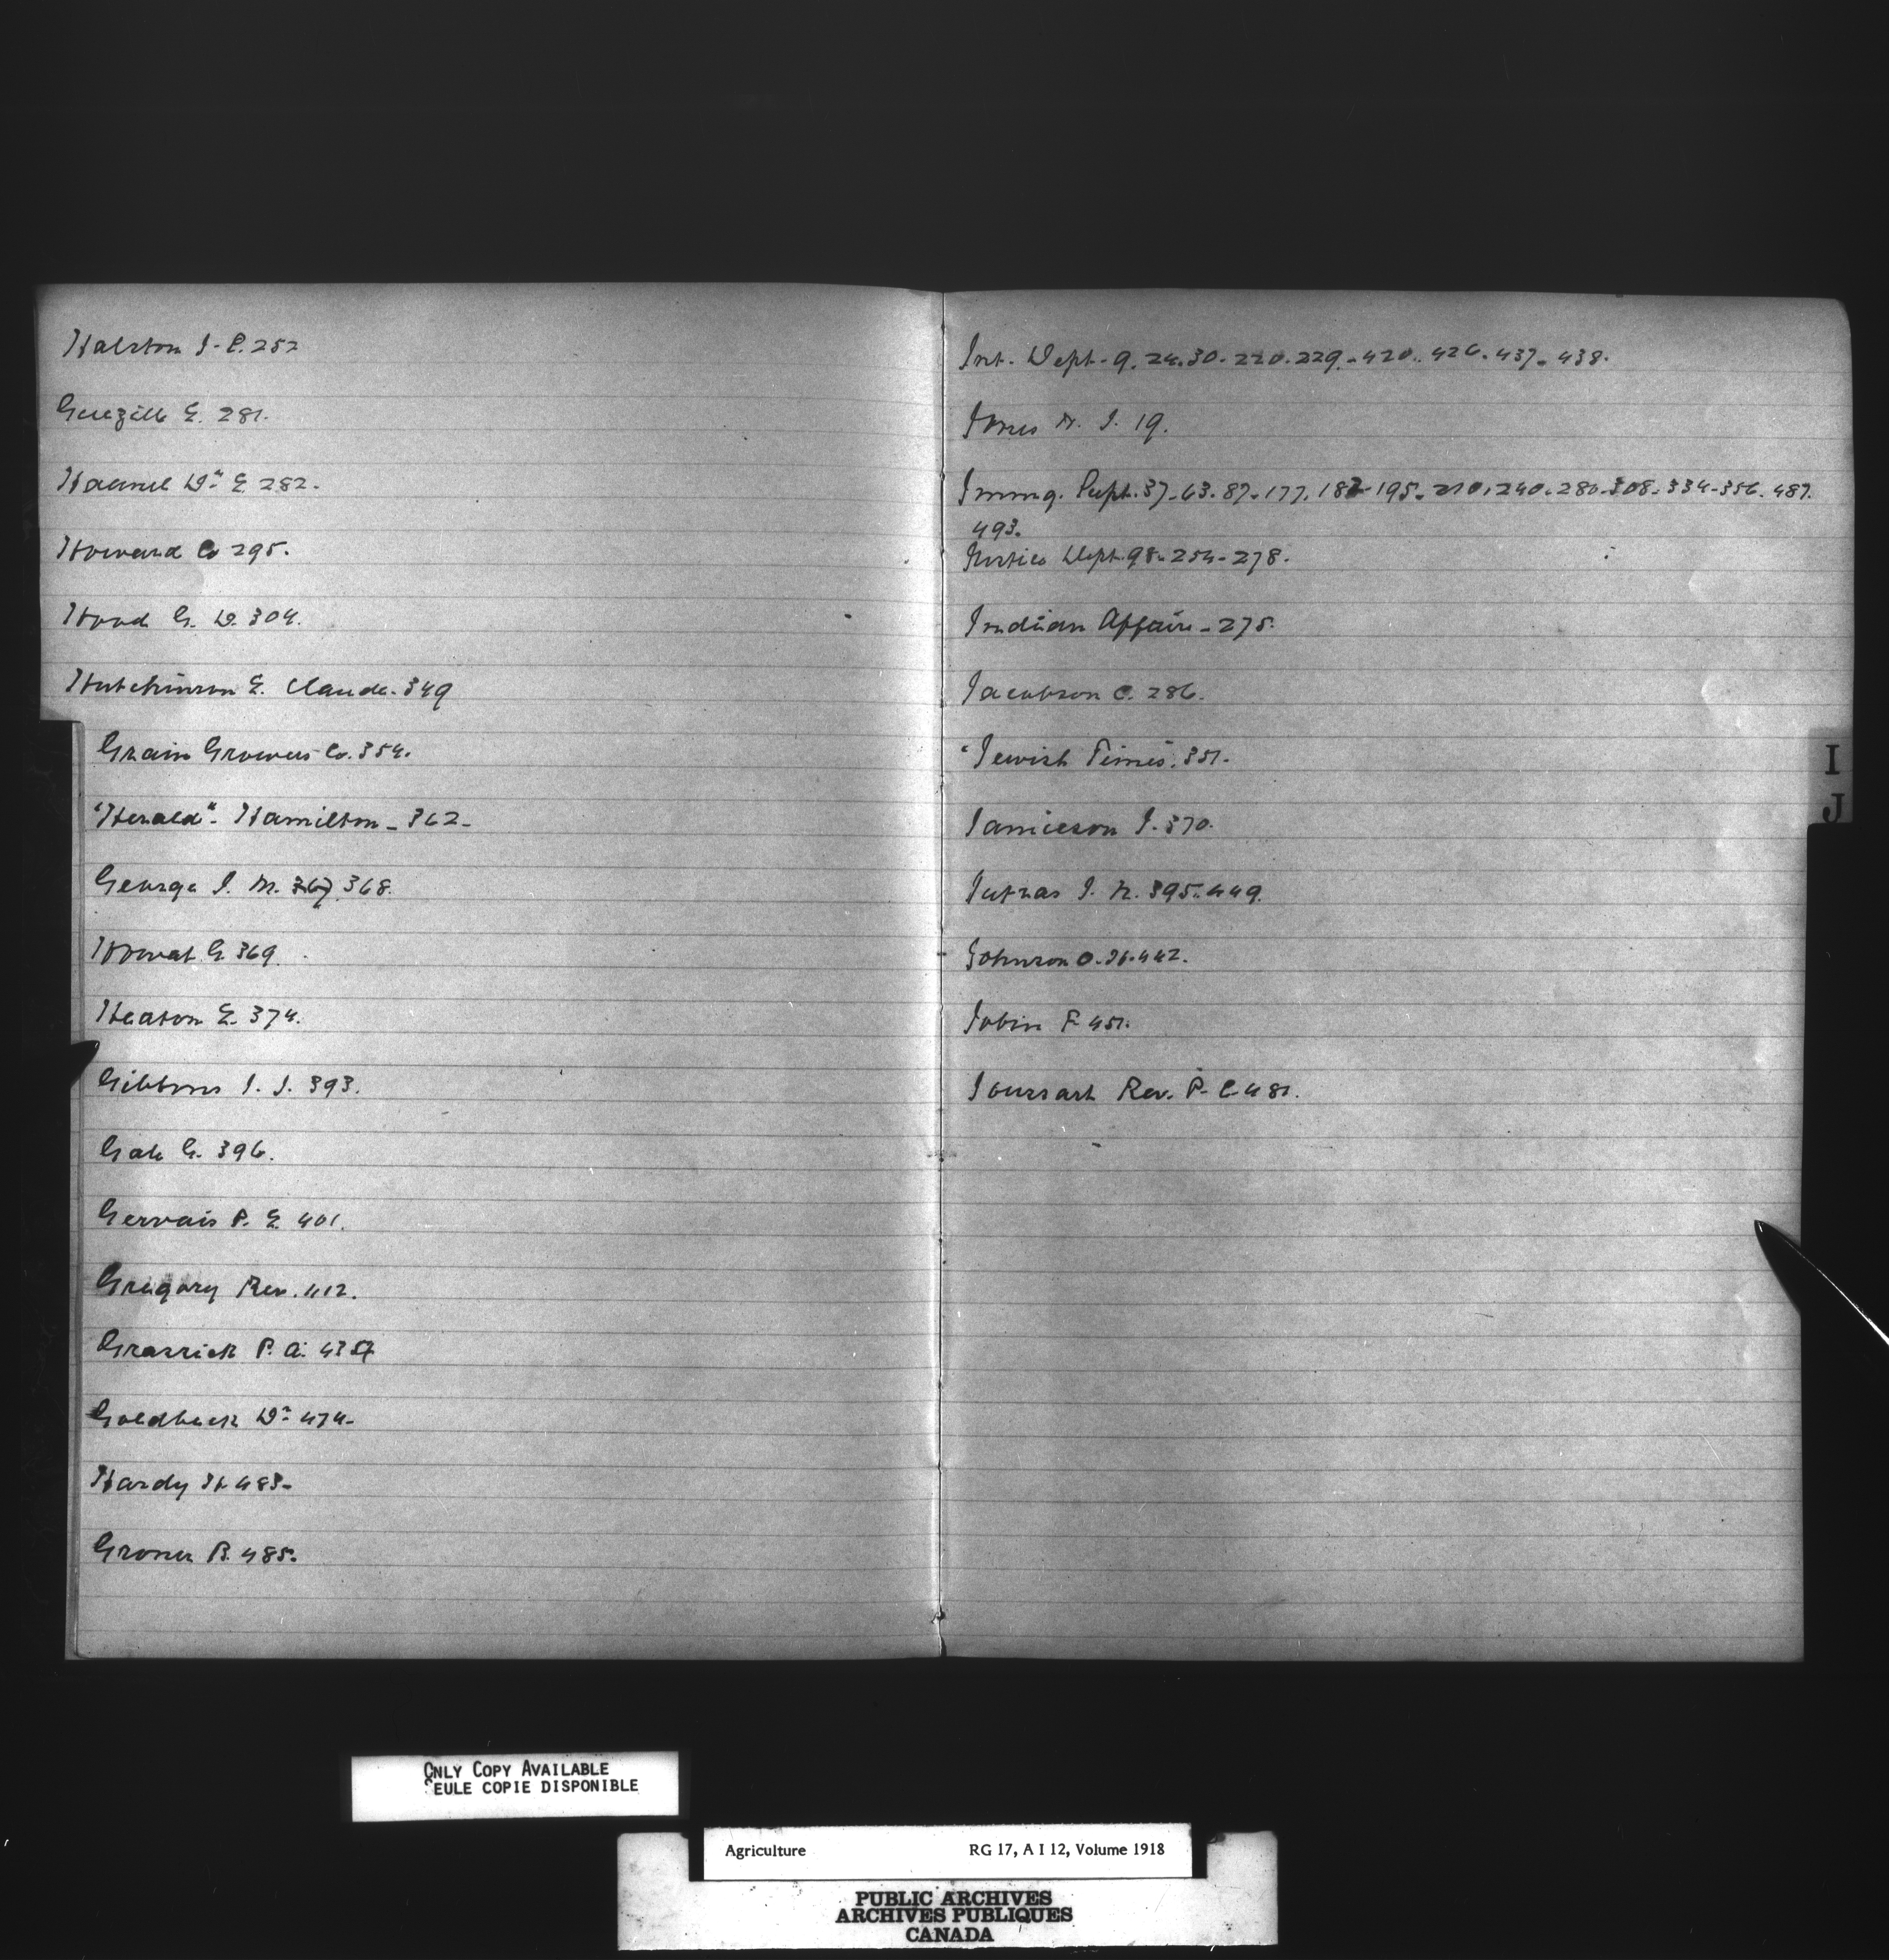 Halston J. P. 252
G. 281.
Haanel Dr E. 282.
Howard Co 295.
Hood G. D. 304.
Hutchinson E. Claude. 349
Grain Growers Co. 354.
"Herald" - Hamilton - 362 -
George J. M. 367. 368.
Howat G. 369.
Heaton E. 374.
Gibbons J. J. 393.
Gale G. 396.
Gervais P. E. 401.
Gregory Rev. 412.
Grassick P. A. 437
Goldbeck Dr 474 -
Hardy H 483 -
Groner B. 485.
Int. Dept. 9. 24. 30 - 220. 229. - 420. 426. 437 - 438.
J. 19.
Immg. Supt. 37 - 63. 87 - 177. 183 - 195 - 210. 240. 280 - 308 - 334 - 356. 487.
493.
Justice Dept. 98 - 254 - 278.
Indian Affairs - 275.
Jacobson C. 286.
"Jewish Times. 351 -
Jamieson J. 370.
Jutras J. N. 395. 449.
Johnson O. H. 442.
Jobin F. 451.
Joussart Rev. P. C. 481.
I
J
ONLY COPY AVAILABLE
SEULE COPIE DISPONIBLE
Agriculture RG 17, A I 12, Volume 1918
PUBLIC ARCHIVES
ARCHIVES PUBLIQUES
CANADA